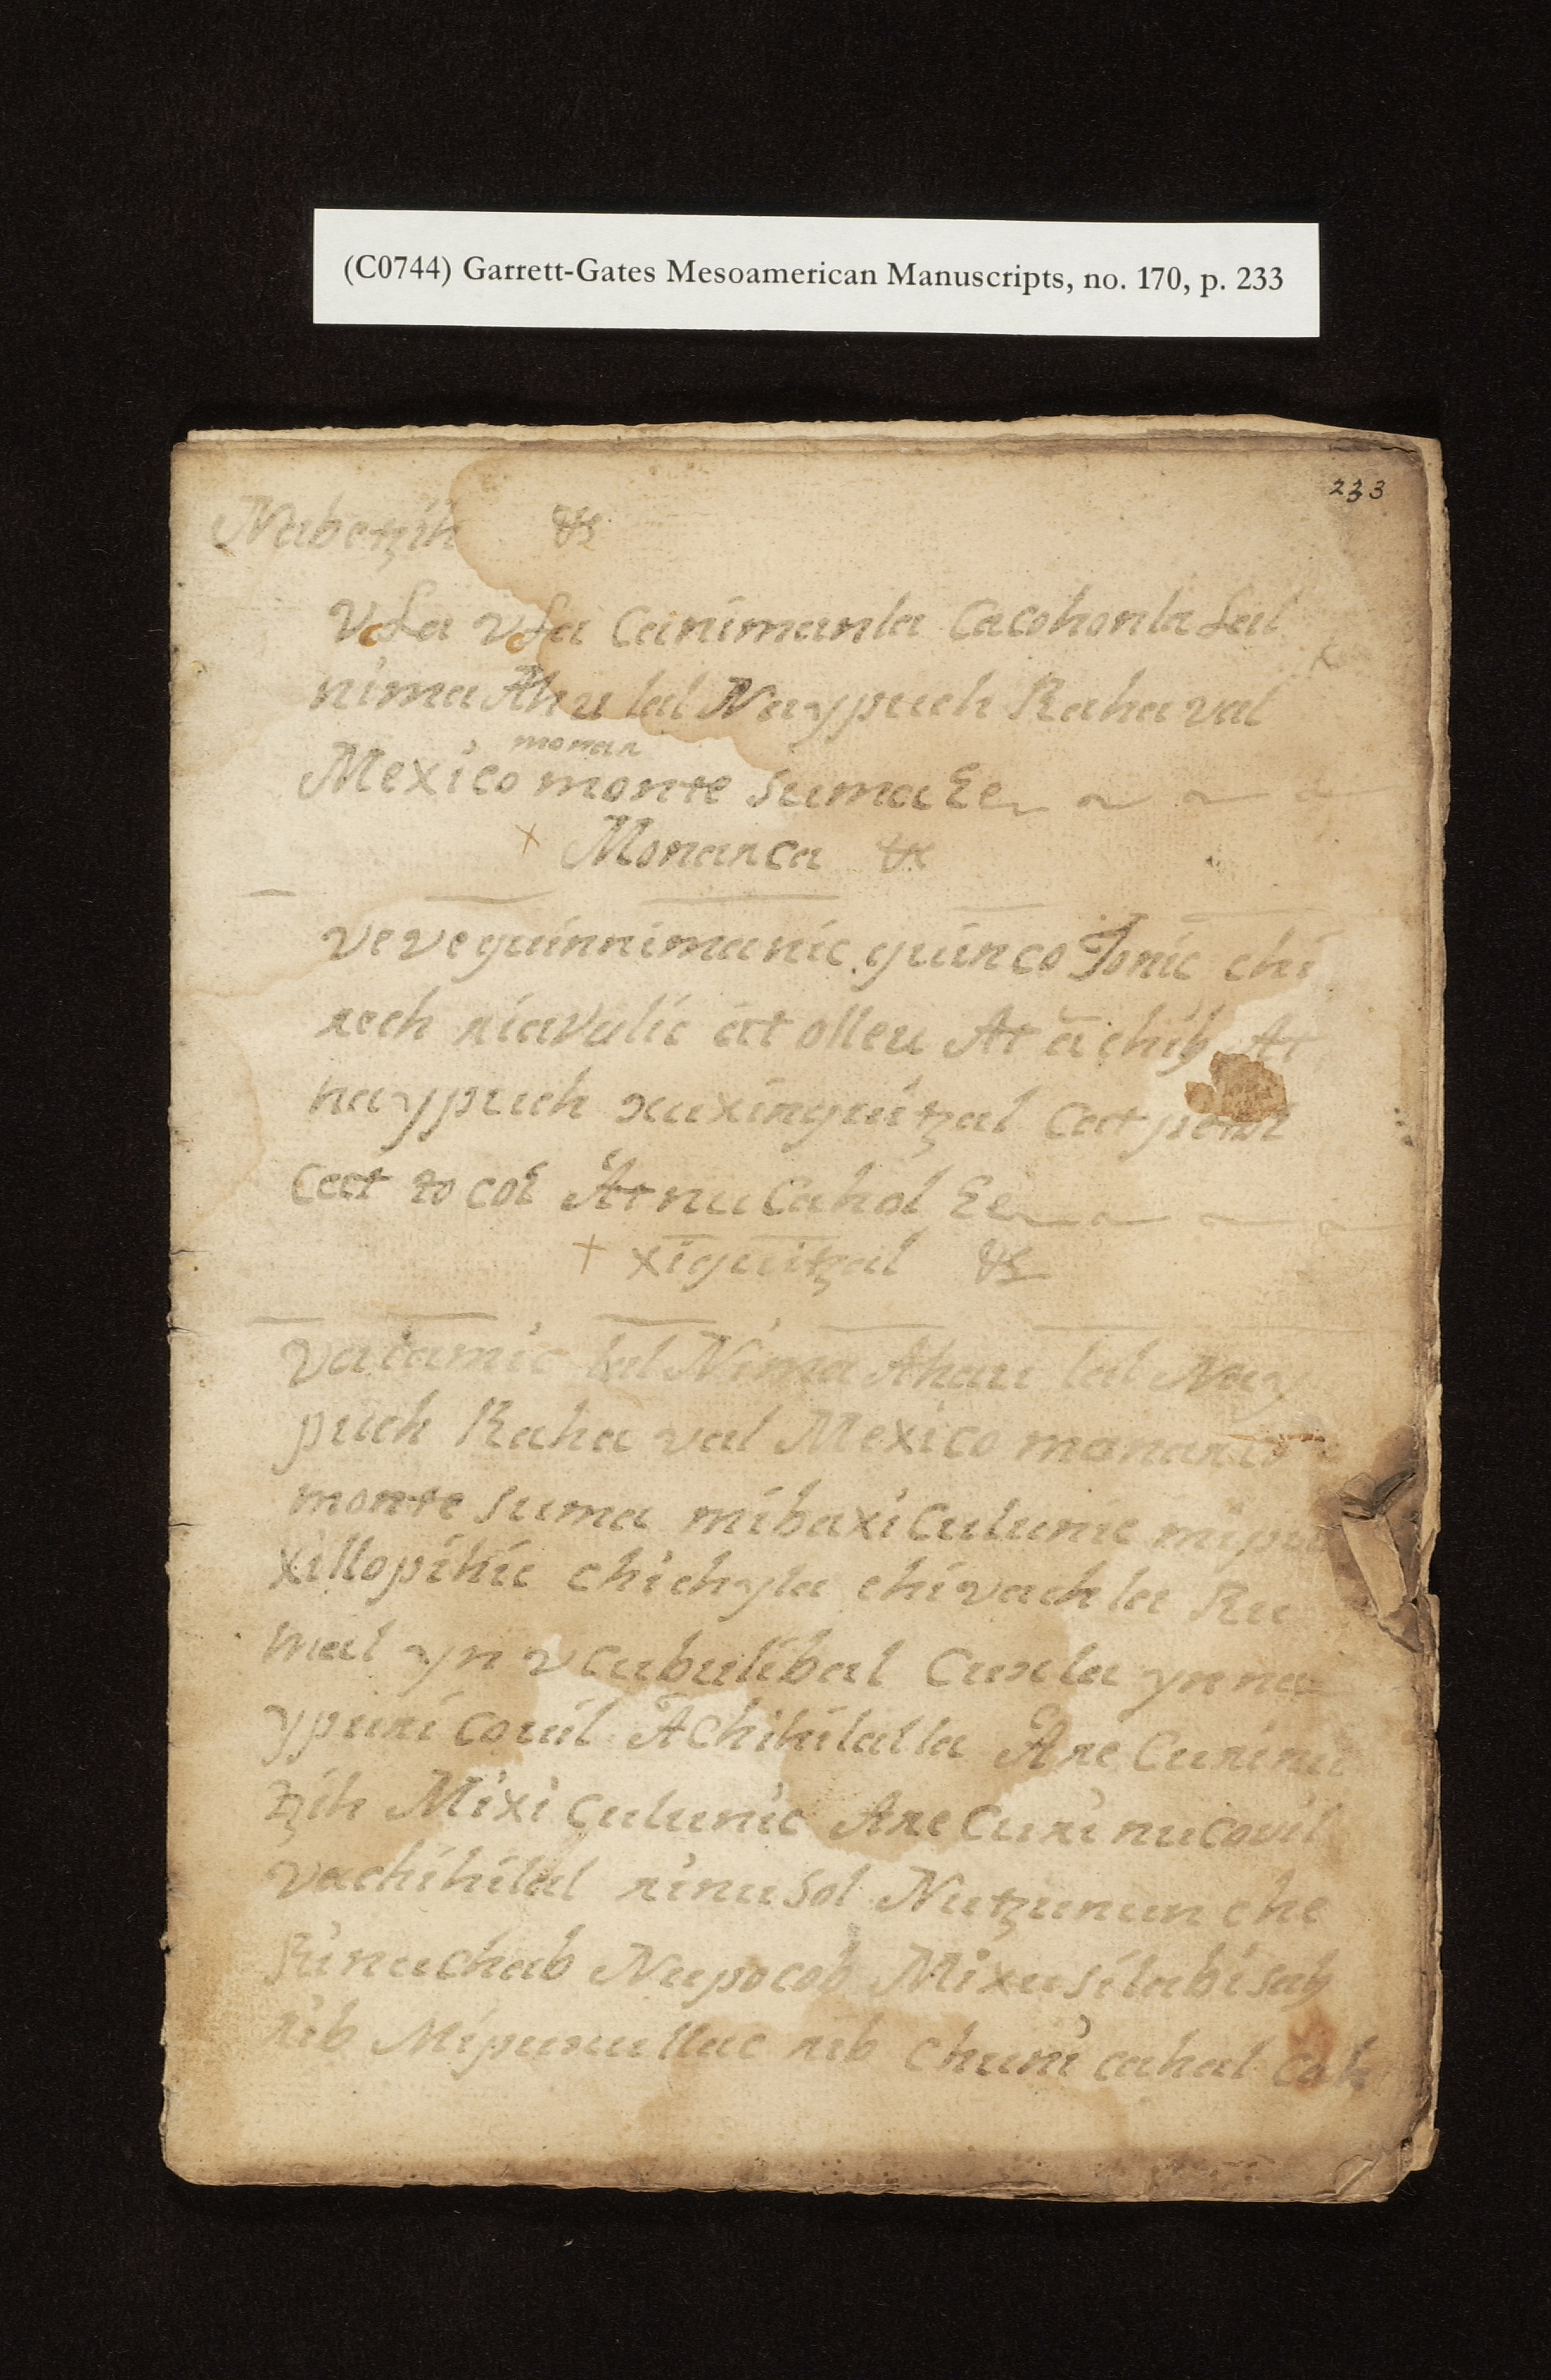 (C0744) Garrett-Gates Mesoamerican Manuscripts, no. 170, p. 233
233
Nabetzih &
v La v La canimanla Cacohonla Lal
nima Ahu lal Naypuch Rahaval
monar
Mexico monte suma Ee
+ Monarca &
veveguinnimanic guinco Jonic chi
rech riavalic at olleu At achih At
naypuch xuxinguitzal Cat
Cat to col At nu Cahol Ee
+ xiguitzal &
vacamic lal Nima Ahau lal Nay
puch Rahaval Mexico
monte suma mibaxi culunic
xillopihic chichyla chivach la Ru
mal yn v cabulibal Cuxla yn na
ypuri covil Achihilal la Are Curinu
tzih Mixi culunic Are Curi nu covil
vachihilal rinu sol Nutzunun che
Rinuchab Nupocob Mixu silabisah
rib chuni cahal cah